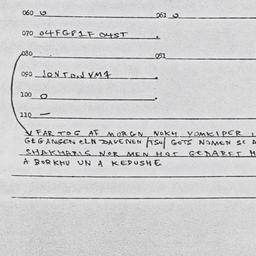 060 0 062 0
070 04FG81F 04ST .
080 081
090 JONTOJVM4 .
100 0
110 —
V FAR TOG AF MORGN NOKH YOMKIPER
GEGANGEN CLN DAVENEN /TSU/ GOTS NOMEN
SHAKHARIS NOR MEN HOT GEDARFT
A BORKHU UN A KEDUSHE